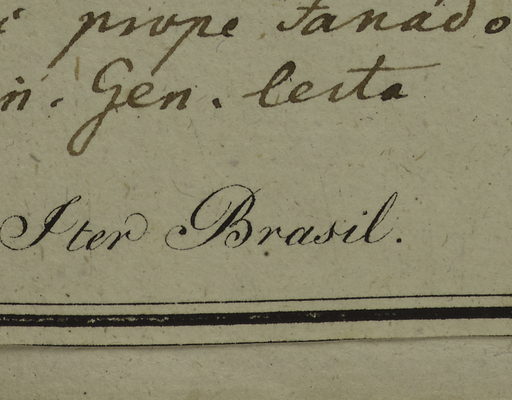 prope Fanado
in. Gen. certa
Iter Brasil.